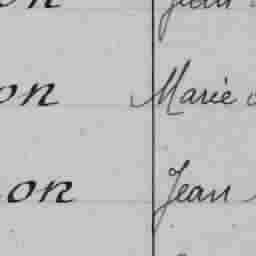 on Jean
on Marie
on Jean